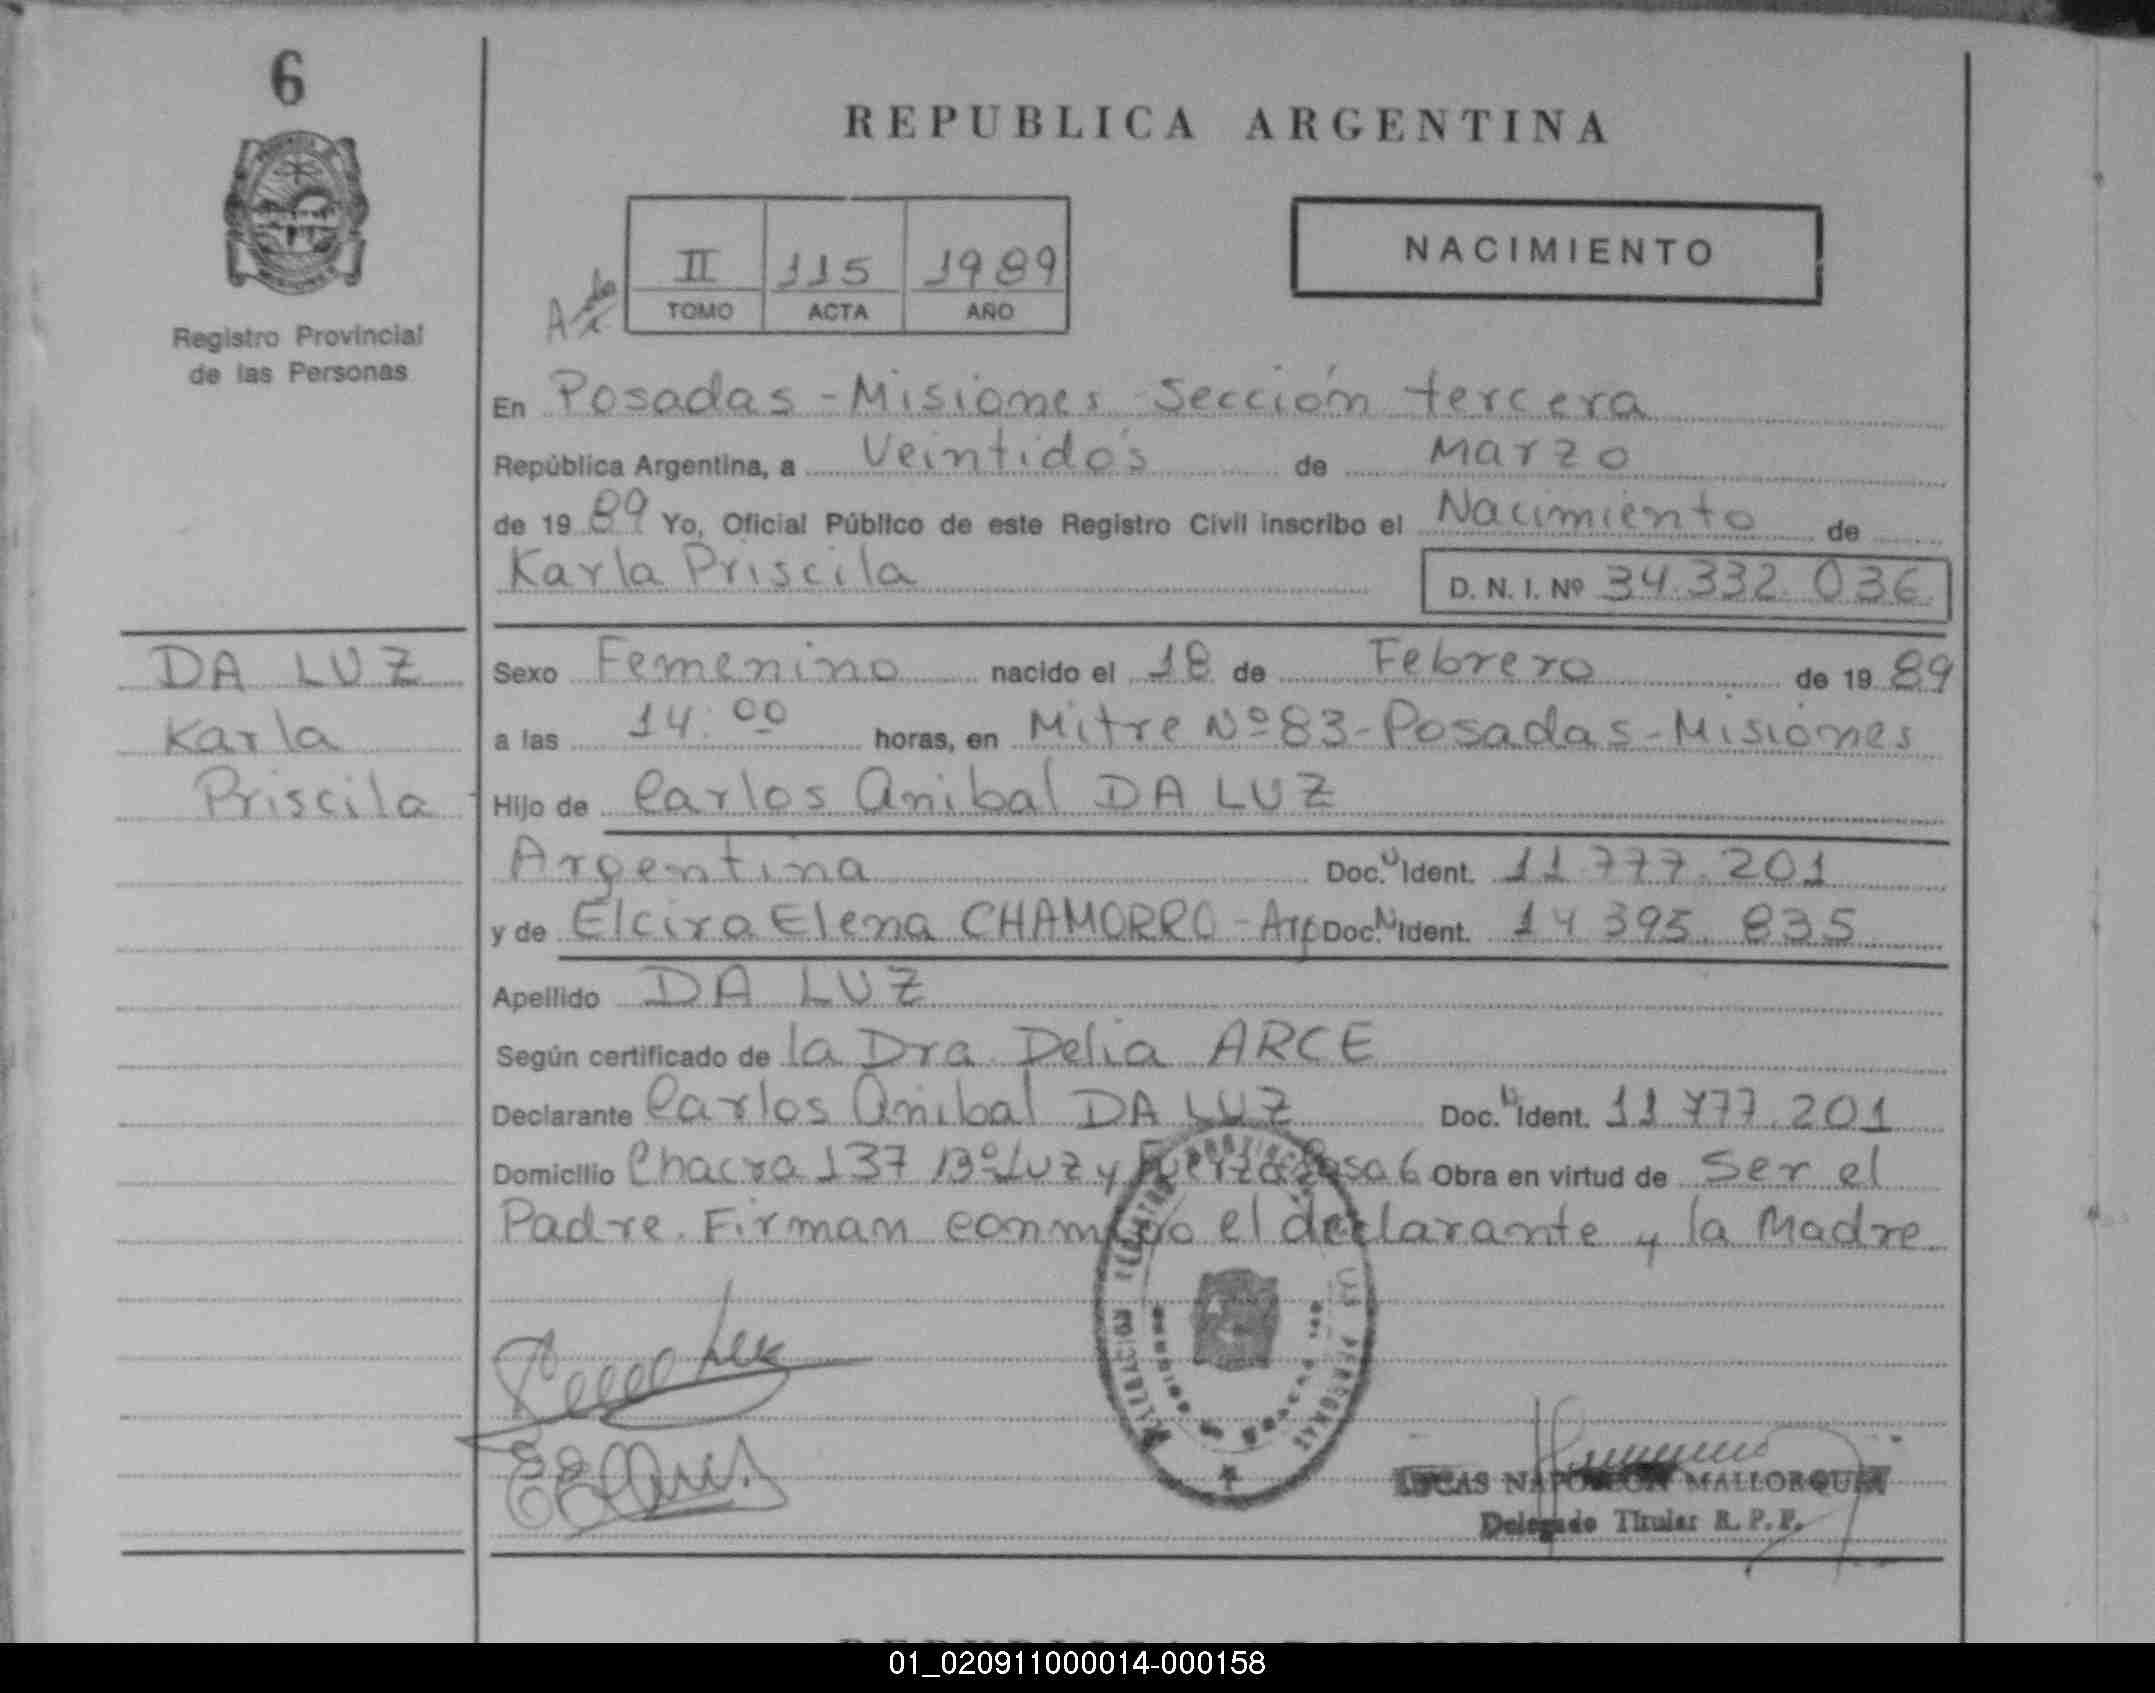 6
REPUBLICA ARGENTINA
II 115 1989
TOMO ACTA AÑO
NACIMIENTO
Registro Provincial
de las Personas
En Posadas - Misiones Sección tercera
República Argentina, a Veintidós de Marzo
de 1989 Yo, Oficial Público de este Registro Civil inscribo el Nacimiento de
Karla Priscila D. N. I. Nº 34.332.036
DA LUZ
Karla
Priscila
Sexo Femenino nacido el 18 de Febrero de 1989
a las 14:00 horas, en Mitre Nº 83 - Posadas - Misiones
Hijo de Carlos Anibal DA LUZ
Argentina Doc. Ident. 11.777.201
y de Elcira Elena CHAMORRO - Arg Doc. Ident. 14.395.835
Apellido DA LUZ
Según certificado de la Dra Delia ARCE
Declarante Carlos Anibal DA LUZ Doc. Ident. 11.777.201
Domicilio Chacra 137 Bº Luz y Fuerza Casa 6 Obra en virtud de Ser el
Padre. Firman conmigo el declarante y la Madre
LUCAS NAPOLEON MALLORQUIN
Delegado Titular R. P. P.
01_020911000014-000158